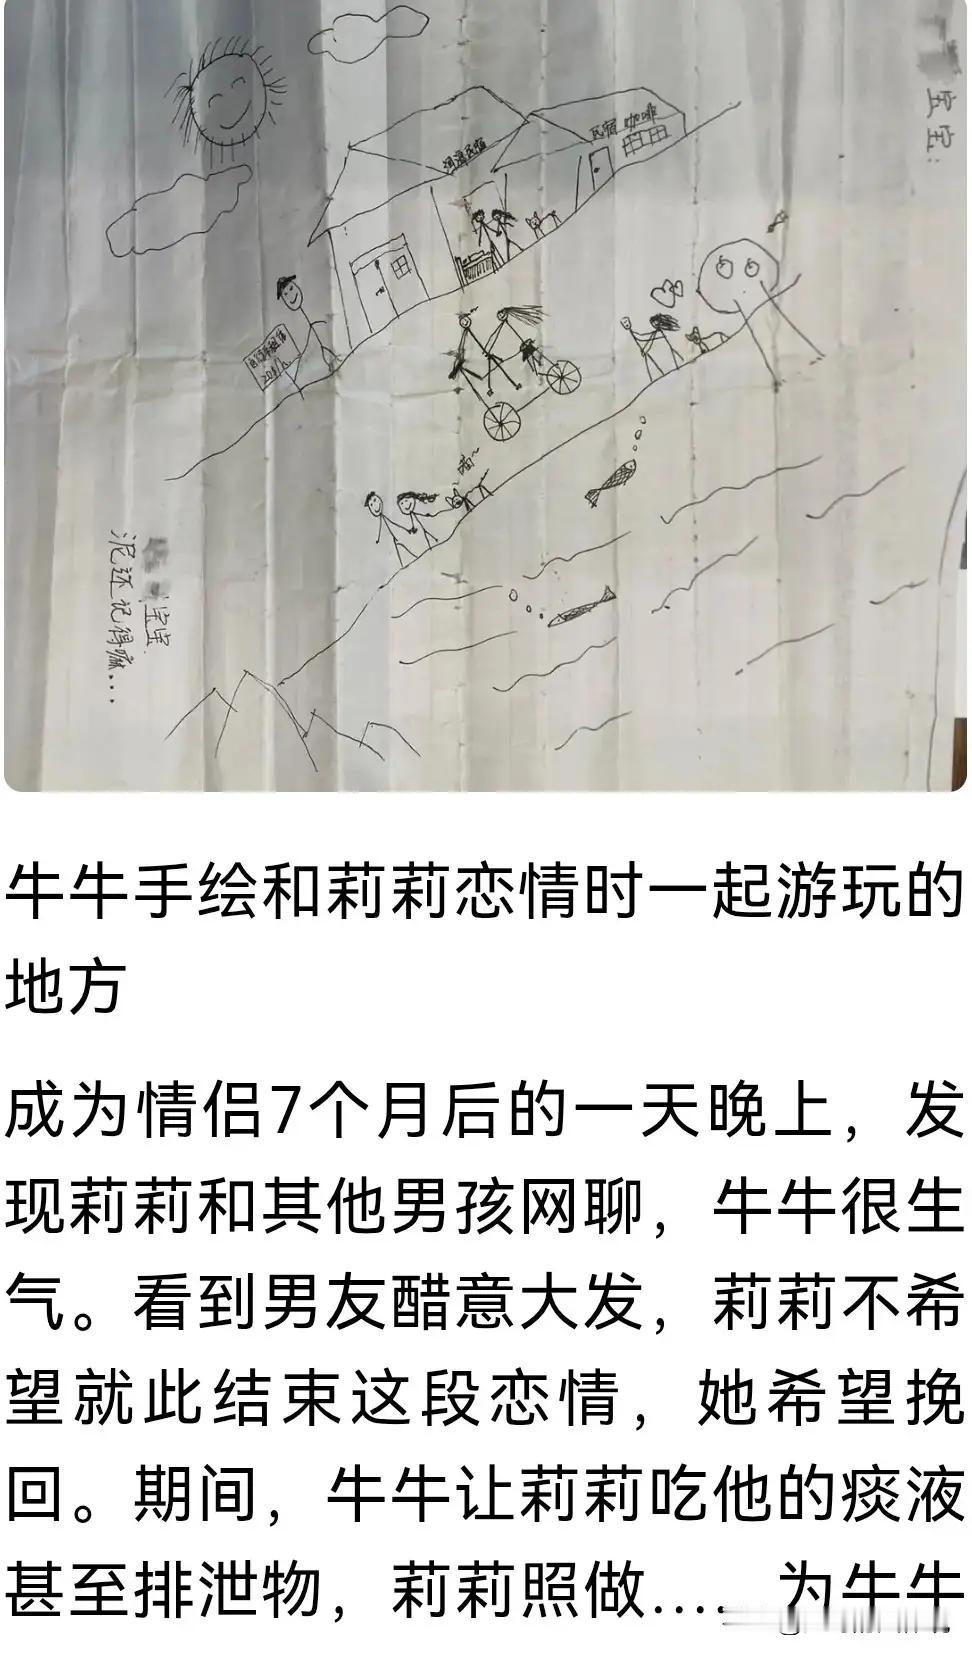 宝宝：
洱海民宿
民宿 咖啡
喵~
宝宝
泥还记得嘛...
牛牛手绘和莉莉恋情时一起游玩的
地方
成为情侣7个月后的一天晚上，发
现莉莉和其他男孩网聊，牛牛很生
气。看到男友醋意大发，莉莉不希
望就此结束这段恋情，她希望挽
回。期间，牛牛让莉莉吃他的痰液
甚至排泄物，莉莉照做.... 为牛牛